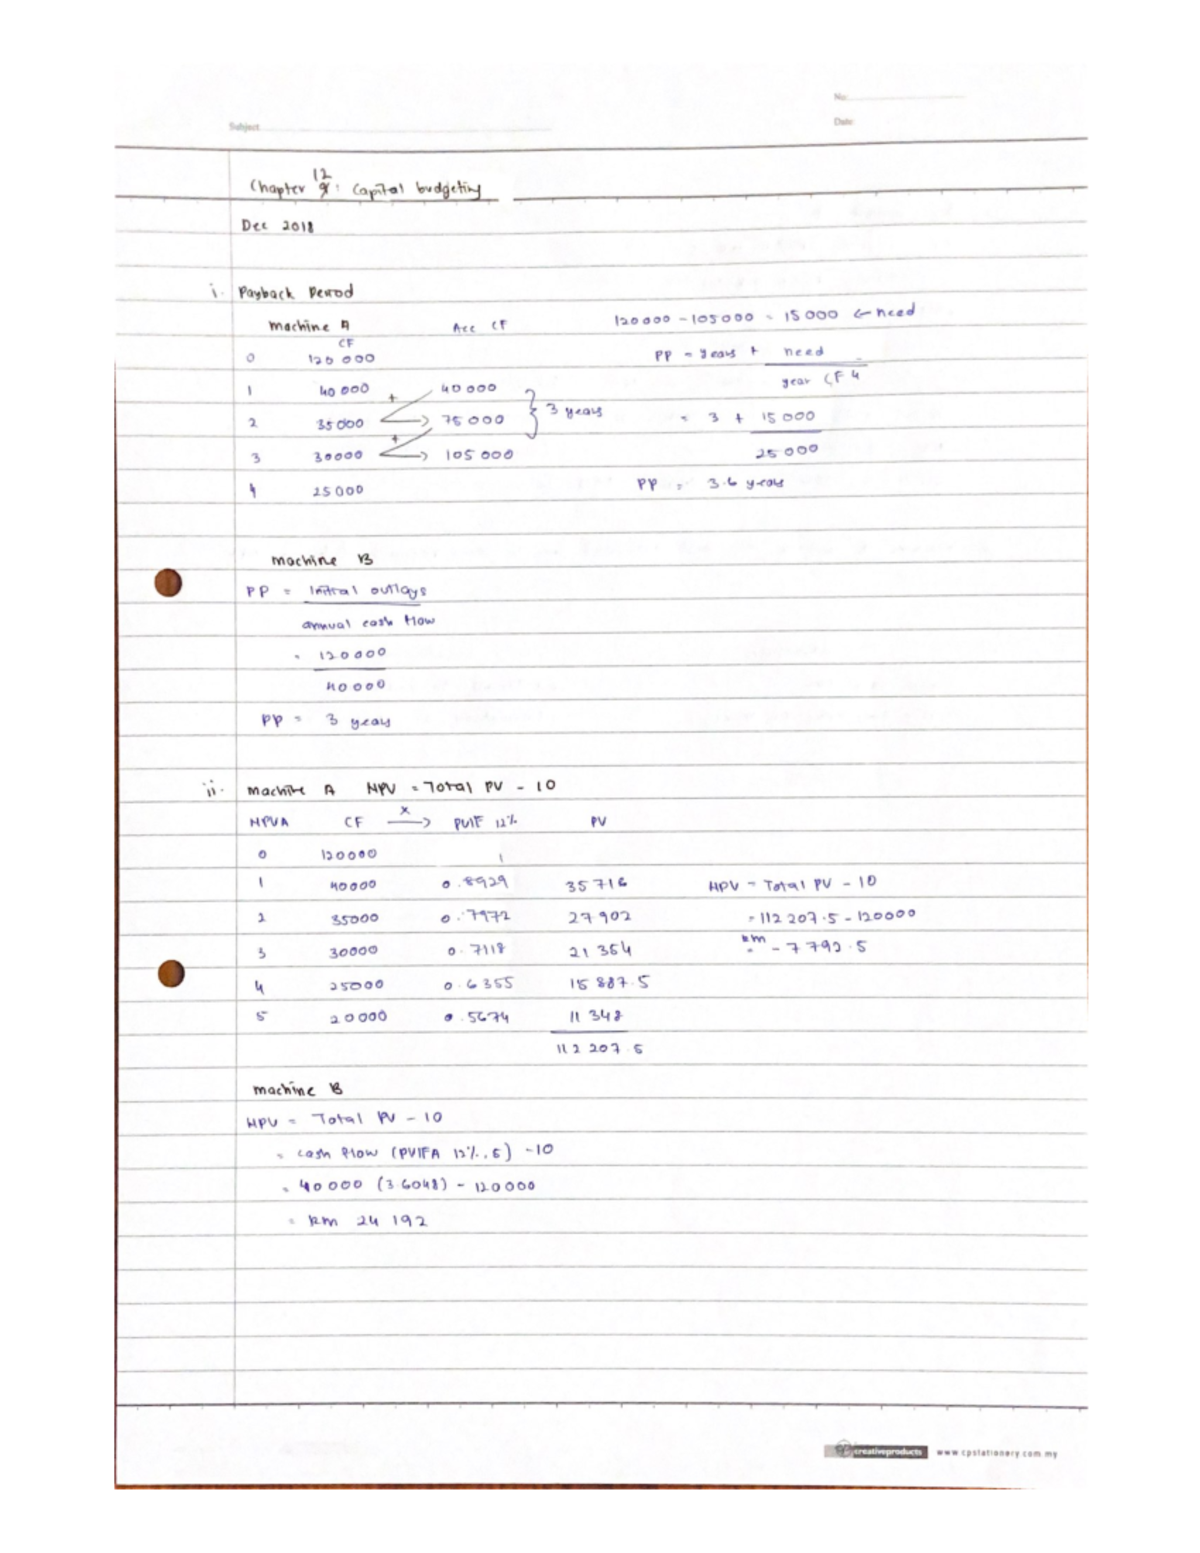 No:
Subject
Date:
12
Chapter 9: Capital budgeting
Dec 2018
i. Payback Period
machine A Acc CF 120000 - 105000 = 15000 ← need
CF
0 120 000 PP = years + need
year CF 4
1 40 000 + 40 000
2 35000 → 75 000 } 3 years = 3 + 15 000
3 30000 + → 105 000 25 000
4 25000 PP = 3.6 years
machine B
PP = Initial outlays
annual cash flow
= 120000
40 000
PP = 3 years
ii. machine A NPV = Total PV - IO
NPVA CF x → PVIF 12% PV
0 120000 1
1 40000 0.8929 35716 NPV = Total PV - IO
2 35000 0.7972 27902 = 112 207.5 - 120000
3 30000 0.7118 21 354 = RM - 7 792.5
4 25000 0.6355 15 887.5
5 20000 0.5674 11 348
112 207.5
machine B
NPV = Total PV - IO
= cash flow (PVIFA 12%, 5) - IO
= 40 000 (3.6048) - 120000
= RM 24 192
cp creativeproducts www.cpstationery.com.my